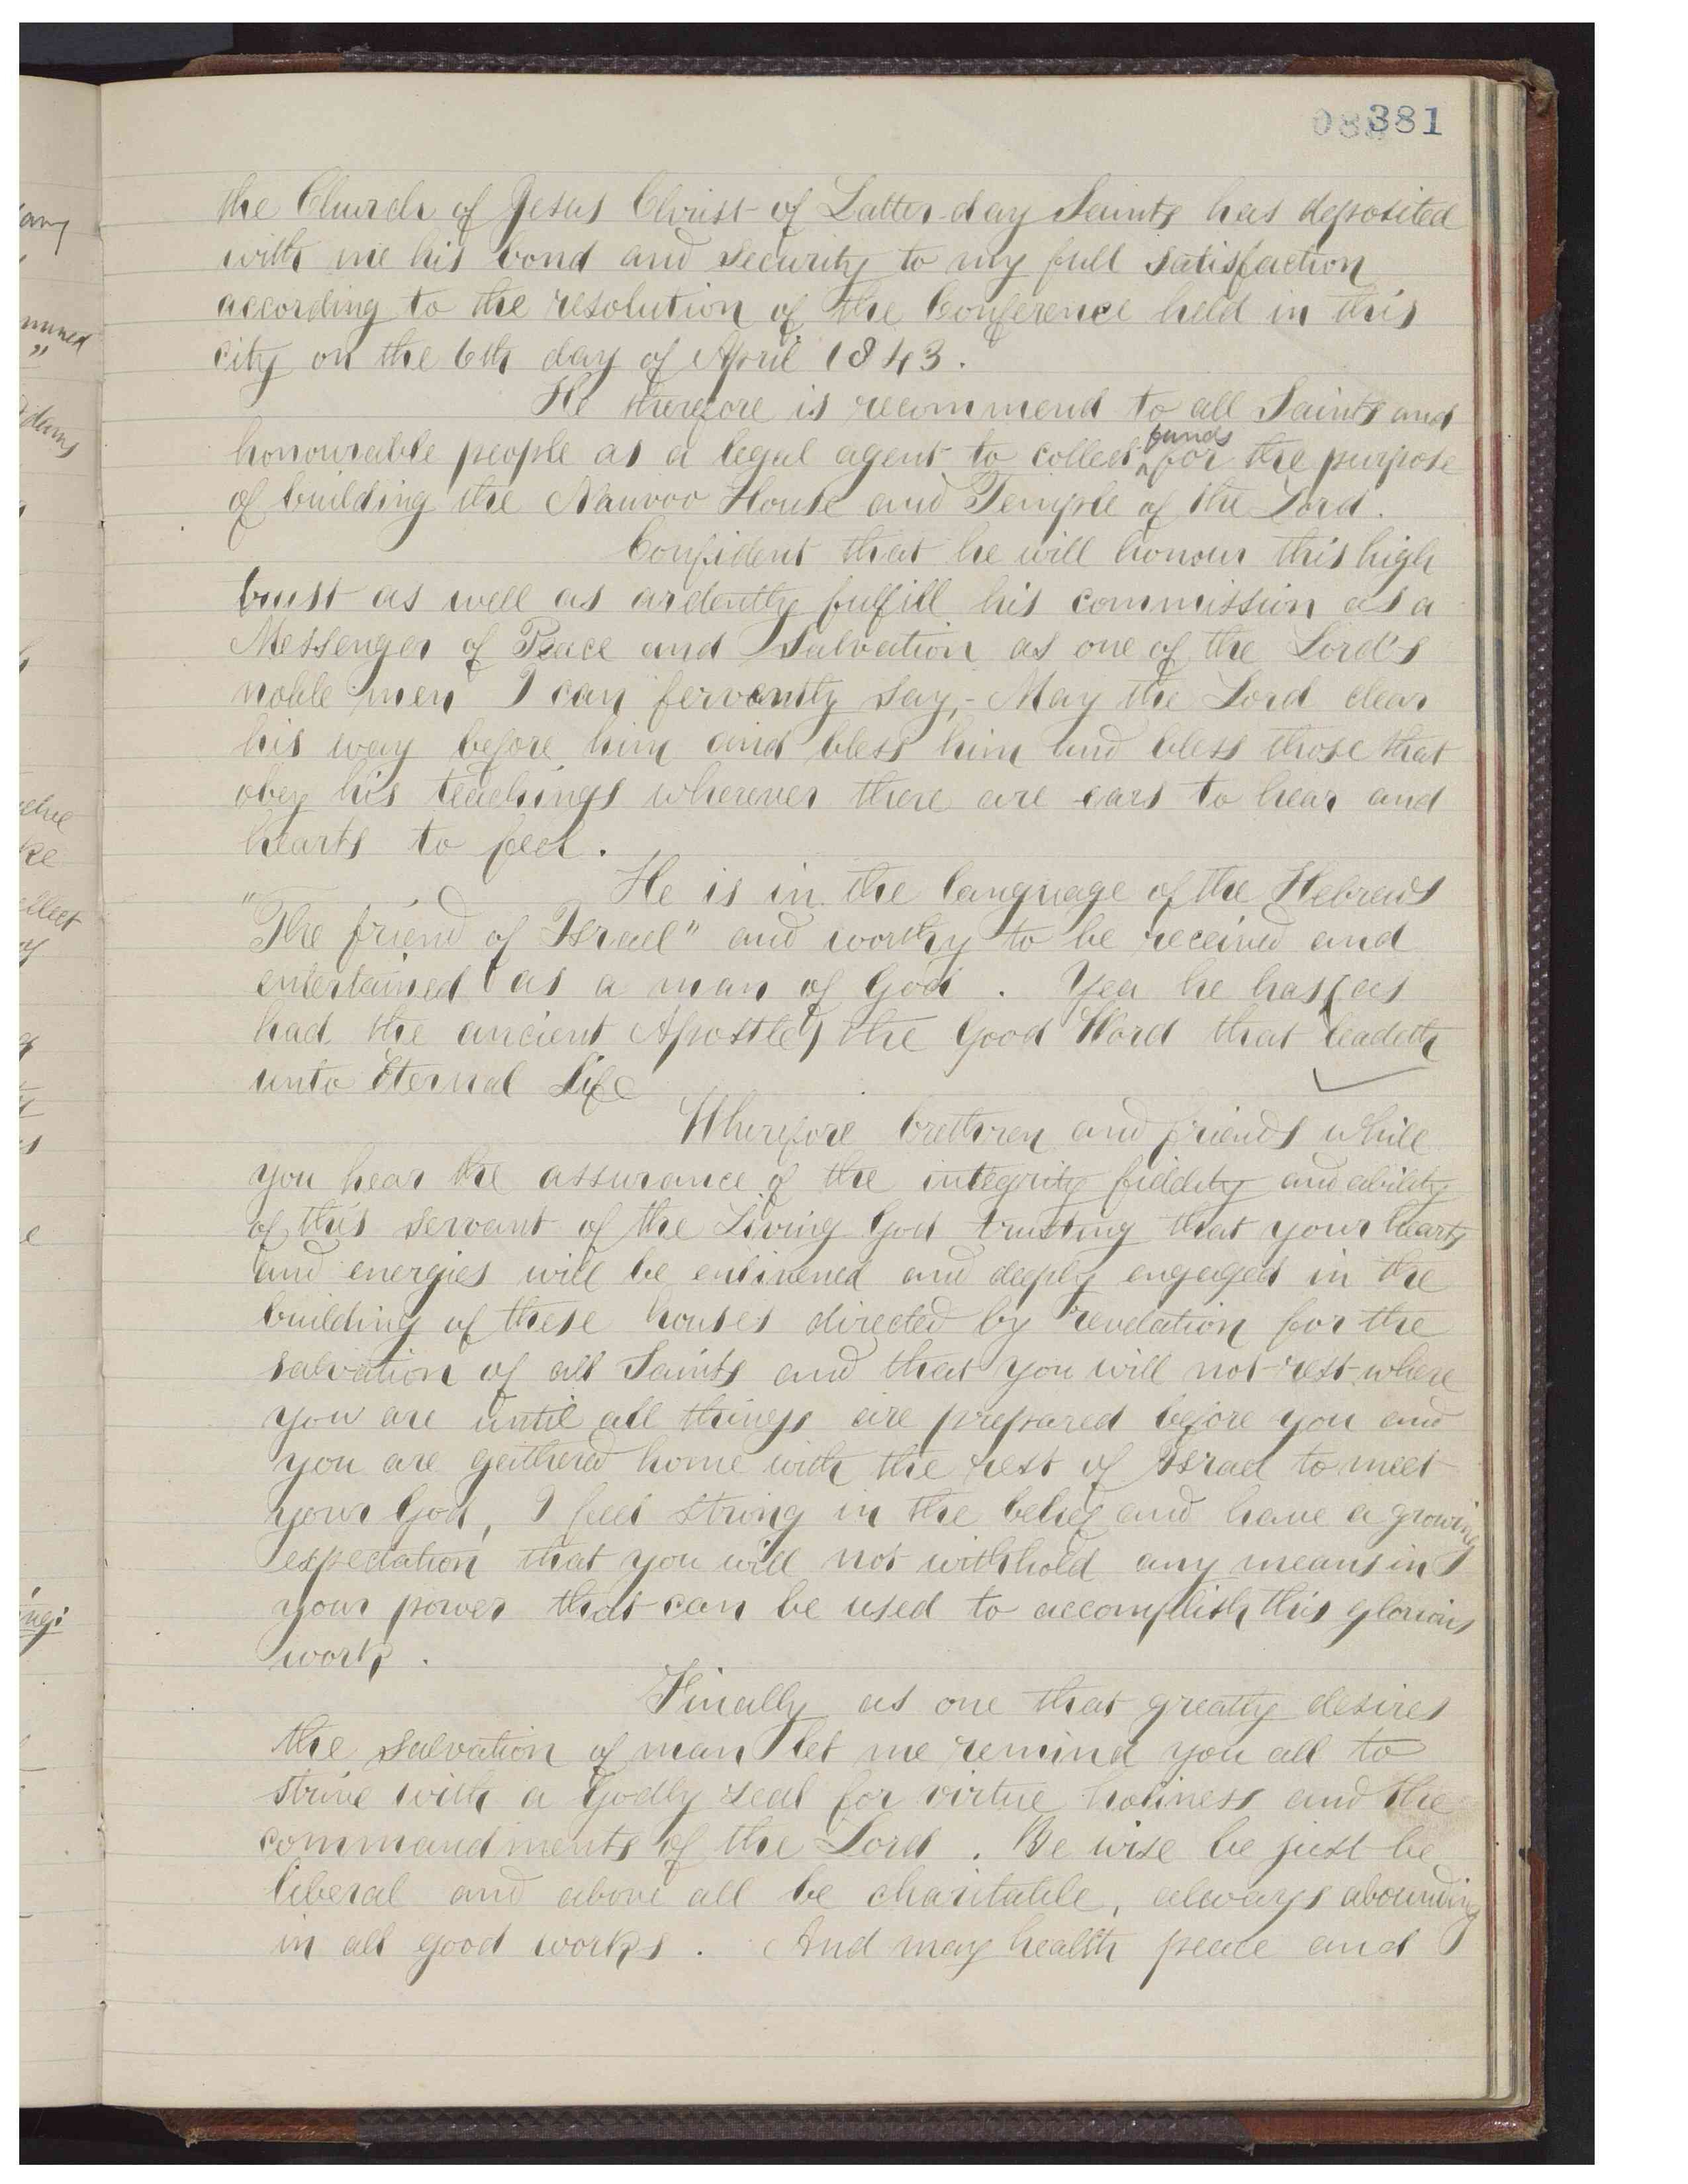 381
the Church of Jesus Christ of Latter-day Saints has deposited
with me his bond and security to my full satisfaction
according to the resolution of the Conference held in this
city on the 6th day of April 1843.
He therefore is recommend to all Saints and
honourable people as a legal agent to collect ^funds for the purpose
of building the Nauvoo House and Temple of the Lord.
Confident that he will honour this high
trust as well as ardently fulfill his commission as a
Messenger of Peace and Salvation as one of the Lord's
noble men I can fervently say,- May the Lord clear
his way before him and bless him and bless those that
obey his teachings wherever there are ears to hear and
hearts to feel.
He is in the language of the Hebrews
"The friend of Israel" and worthy to be received and
entertained as a man of God. Yea he has (as
had the ancient Apostles) the Good Word that leadeth
unto Eternal Life
Wherefore brethren and friends while
you hear the assurance of the integrity fidelity and ability
of this servant of the Living God trusting that your hearts
and energies will be enlivened and deeply engaged in the
building of these houses directed by revelation for the
salvation of all Saints and that you will not rest where
you are until all things are prepared before you and
you are gathered home with the rest of Israel to meet
your God, I feel strong in the belief and have a growing
expectation that you will not withhold any means in
your power that can be used to accomplish this glorious
work.
Finally as one that greatly desires
the salvation of man let me remind you all to
strive with a Godly zeal for virtue holiness and the
commandments of the Lord. Be wise be just be
liberal and above all be charitable, always abounding
in all good works. And may health peace and